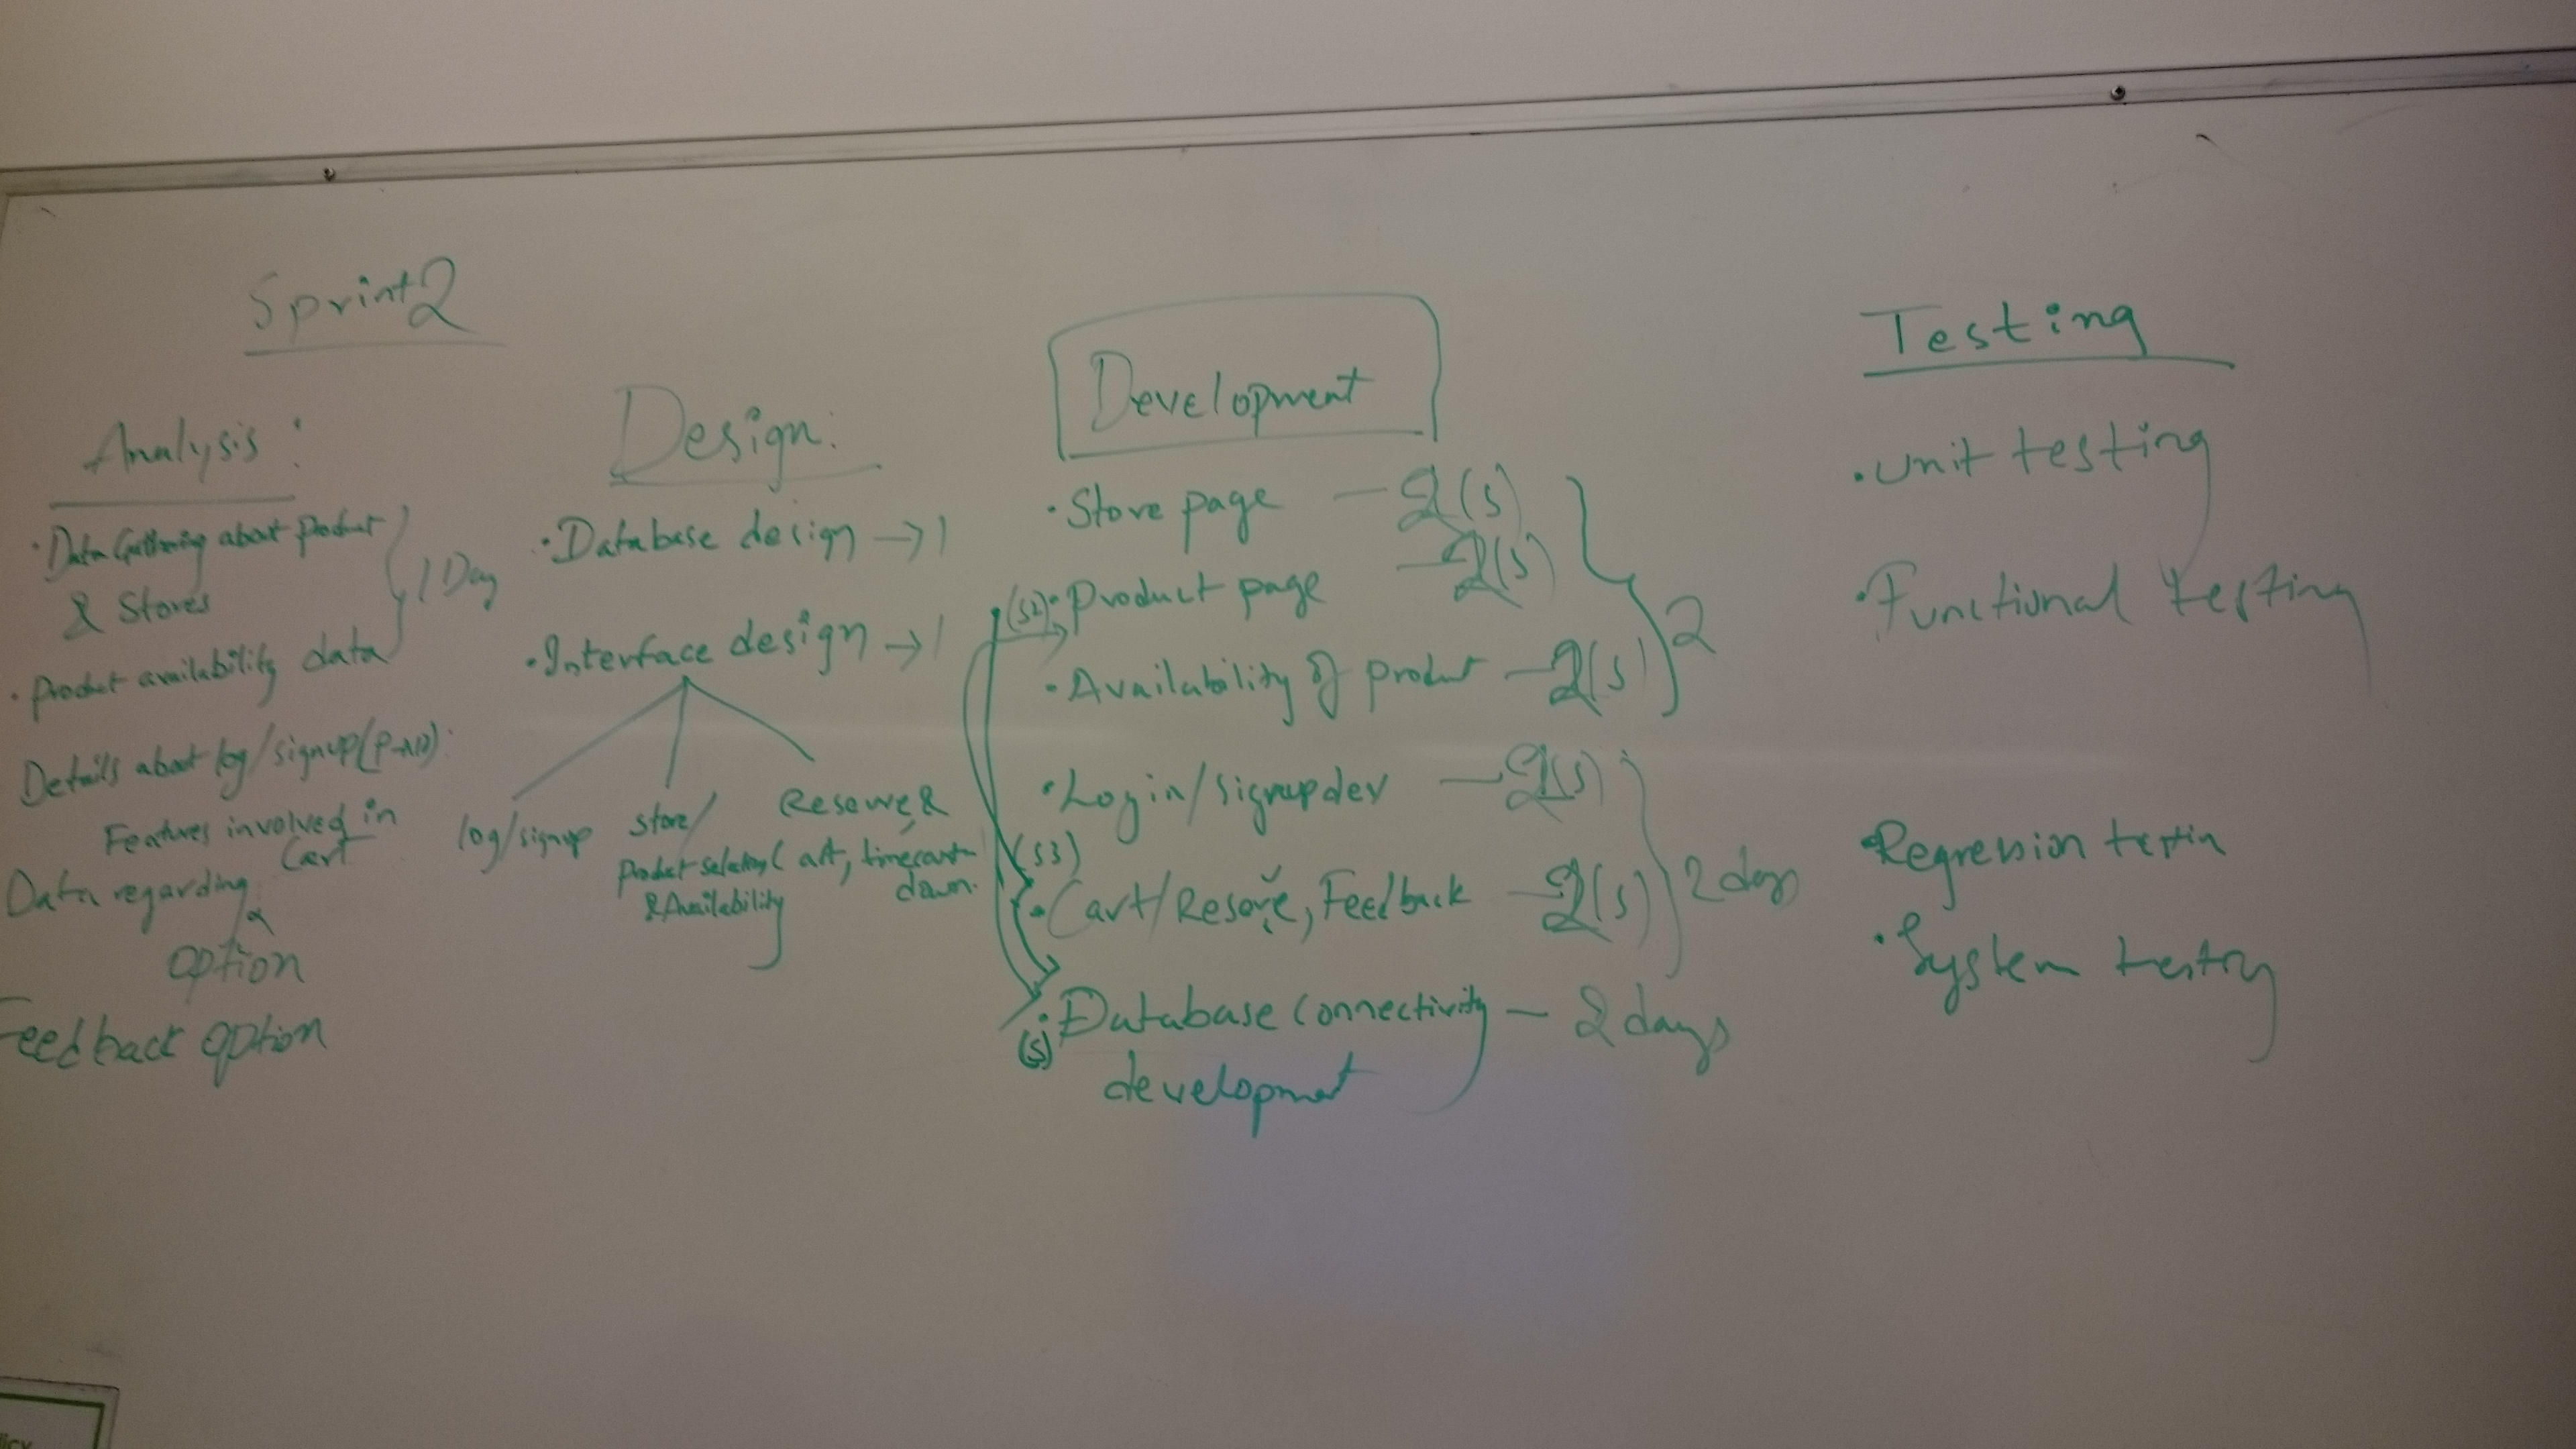 Sprint 2
Analysis:
• Data Gathering about product
& Stores
• Product availability data
1 Day
Details about log/signup
Features involved in
Cart
Data regarding
option
Feedback option
Design:
• Database design → 1
• Interface design → 1
log/signup
store/
Product selection
& Availability
Reserve &
cart, timecount
down.
Development
• Store page — 2(s)
(S2) • Product page — 2(s)
• Availability of product — 2(s)
2
• Login/signup dev — 2(s)
(S3)
• Cart/Reserve, Feedback — 2(s)
2 days
(s) • Database connectivity — 2 days
development
Testing
• Unit testing
• Functional testing
• Regression testin
• System testing